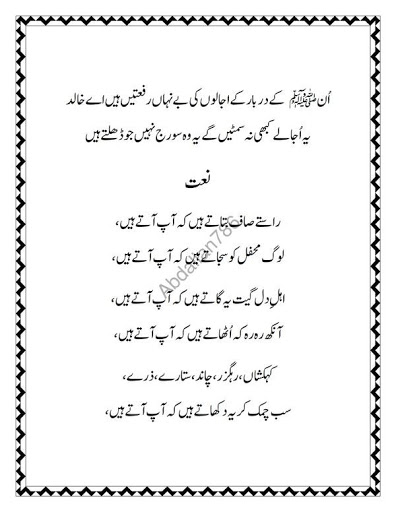 اُن ﷺ کے دربار کے اجالوں کی بے نہاں رفعتیں ہیں اے خالد
یہ اُجالے کبھی نہ سمٹیں گے یہ وہ سورج نہیں جو ڈھلتے ہیں
نعت
راستے صاف بتاتے ہیں کہ آپ آتے ہیں،
لوگ محفل کو سجاتے ہیں کہ آپ آتے ہیں،
اہلِ دل گیت یہ گاتے ہیں کہ آپ آتے ہیں،
آنکھ رہ رہ کہ اُٹھاتے ہیں کہ آپ آتے ہیں،
کہکشاں، رہگزر، چاند، ستارے، ذرے،
سب چمک کر یہ دکھاتے ہیں کہ آپ آتے ہیں،
Abdaltan786